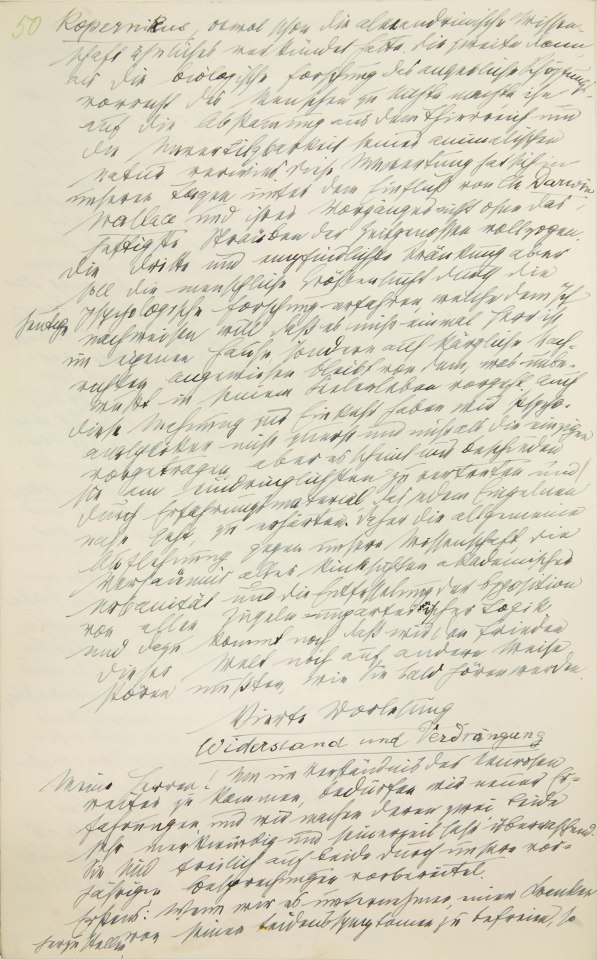 50 Kopernikus, obwol schon die alexandrinische Wissen-
schaft ähnliches verkündet hatte. die zweite dann
als die biologische Forschung das angebliche Schöpfungs-
vorrecht des Menschen zu nichte machte ihn
auf die Abstammung aus dem Thierreich und
die Unvertilgbarkeit seiner animalischen
Natur verwies. diese Umwertung hat sich in
unseren Tagen unter dem Einfluß von Ch Darwin
Wallace und ihren Vorgängern nicht ohne das
heftigste Sträuben der Zeitgenossen vollzogen.
die dritte und empfindlichste Kränkung aber
soll die menschliche Größensucht durch die
heutige psychologische Forschung erfahren, welche dem Ich
nachweisen will daß es nicht einmal Herr ist
im eigenen Hause sondern auf kärgliche Nach-
richten angewiesen bleibt von dem, was unbe-
wußt in seinem Seelenleben vorgeht. Auch
diese Mahnung zur Einkehr haben wir Psycho-
analytiker nicht zuerst und nicht als die einzigen
vorgetragen, aber es scheint uns beschieden
sie am eindringlichsten zu vertreten und
durch Erfahrungsmaterial das jedem Einzelnen
nahe geht zu erhärten. Daher die allgemeine
Auflehnung gegen unsere Wissenschaft die
Versäumnis aller Rücksichten akademischer
Urbanität und die Entfesselung der Opposition
von allen Zügeln unparteiischer Logik
und dazu kommt noch daß wir den Frieden
dieser Welt noch auf andere Weise
stören mußten, wie Sie bald hören werden.
Vierte Vorlesung
Widerstand und Verdrängung
Meine Herren! Um im Verständnis der Neurosen
weiter zu kommen, bedürfen wir neuer Er-
fahrungen und wir machen deren zwei. Beide
sehr merkwürdig und seinerzeit sehr überraschend.
Sie sind freilich auf beide durch unsere vor-
jährigen Besprechungen vorbereitet.
Erstens: Wenn wir es unternehmen, einen Kranken
herzustellen, von seinen Leidenssymptomen zu befreien, so